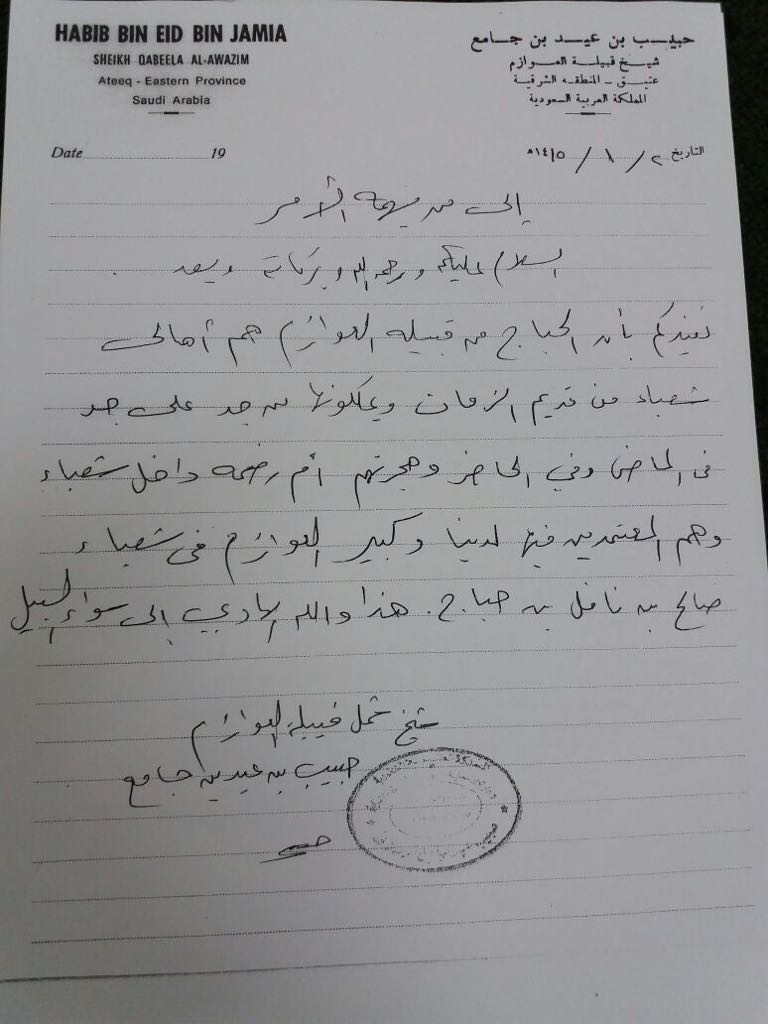 HABIB BIN EID BIN JAMIA
SHEIKH QABEELA AL-AWAZIM
Ateeq - Eastern Province
Saudi Arabia
حبيب بن عيد بن جامع
شيخ قبيلة العوازم
عتيق - المنطقة الشرقية
المملكة العربية السعودية
Date 19
التاريخ ٢ / ١ / ١٤١٥هـ
إلى من يهمه الأمر
السلام عليكم ورحمة الله وبركاته وبعد
نفيدكم بأن الحباج من قبيلة العوازم هم أهالي
شعباء من قديم الزمان ويملكونها من جد على جد
في الماضي وفي الحاضر وهجرتهم أم رضمه داخل شعباء
وهم المعتمدين فيها لدينا وكبير العوازم في شعباء
صالح بن نافل بن حباج. هذا والله الهادي إلى سواء السبيل
شيخ شمل قبيلة العوازم
حبيب بن عيد بن جامع